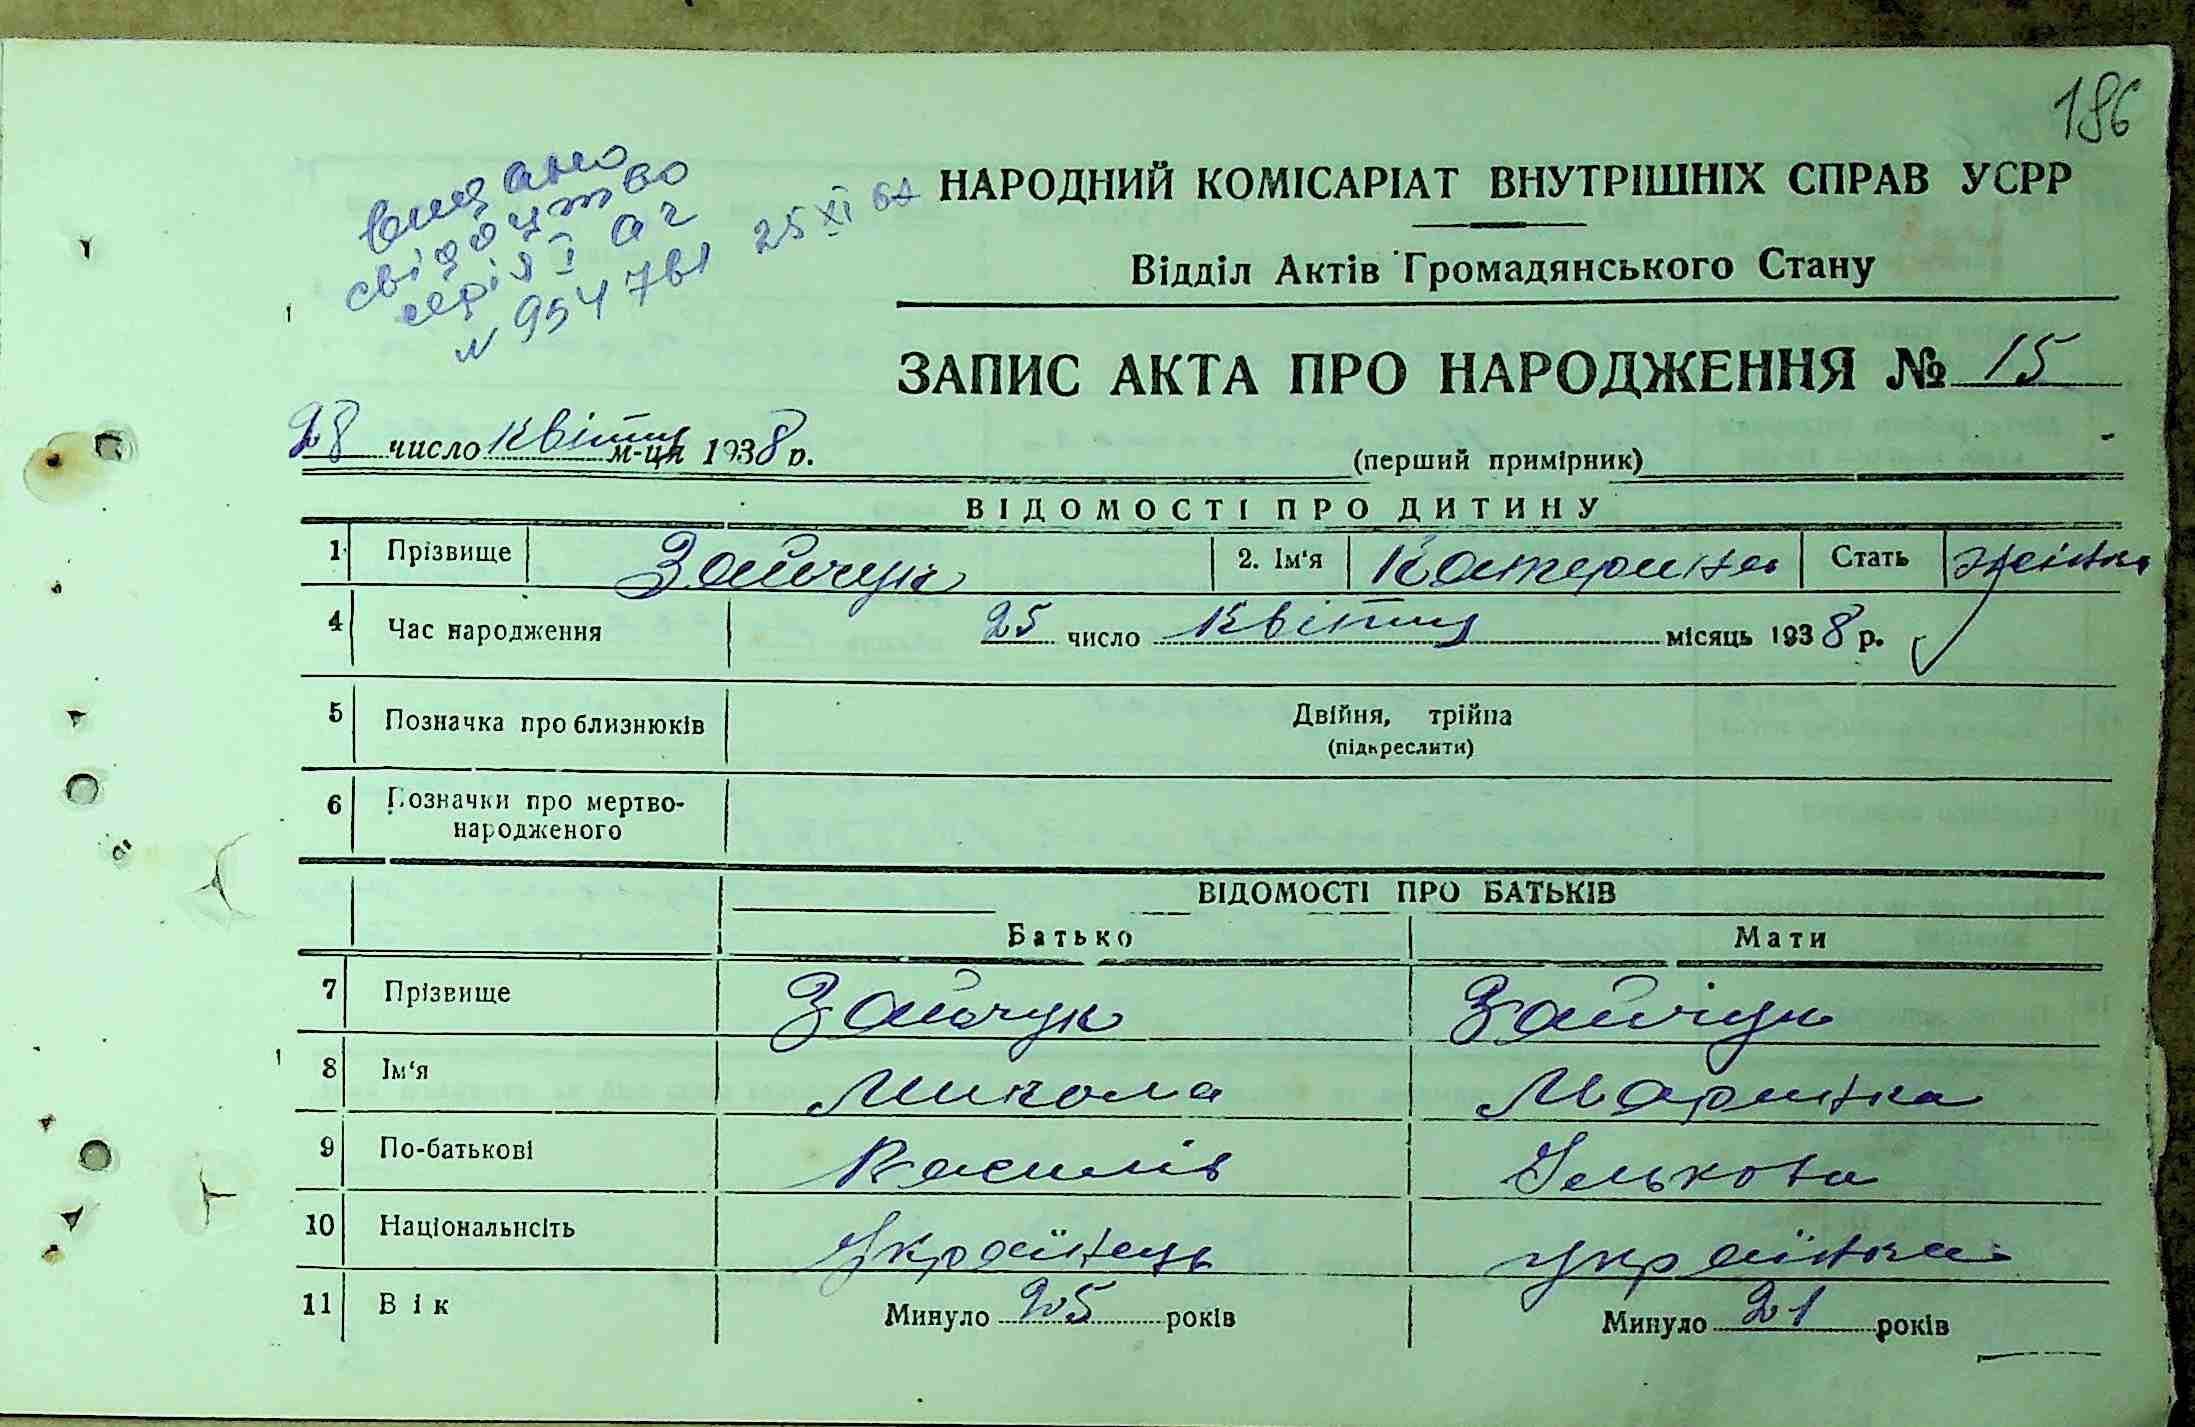 186
видано
свідоцтво
серія І аг
N 954781 25 XI 62
НАРОДНИЙ КОМІСАРІАТ ВНУТРІШНІХ СПРАВ УСРР
Відділ Актів Громадянського Стану
ЗАПИС АКТА ПРО НАРОДЖЕННЯ № 15
28 число квітня м-ця 1938 р.
(перший примірник)
ВІДОМОСТІ ПРО ДИТИНУ
1 Прізвище Зайчук 2. Ім'я Катерина Стать жінка
4 Час народження 25 число квітня місяць 1938 р.
5 Позначка про близнюків Двійня, трійна
(підкреслити)
6 Позначки про мертво-
народженого
ВІДОМОСТІ ПРО БАТЬКІВ
Батько Мати
7 Прізвище Зайчук Зайчук
8 Ім'я Микола Маринка
9 По-батькові Василів Ількова
10 Національнсіть Українець українка
11 Вік Минуло 25 років Минуло 21 років